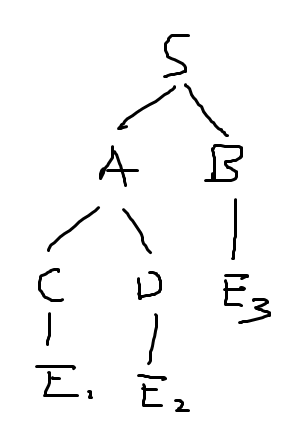 S
A B
C D E3
E1 E2